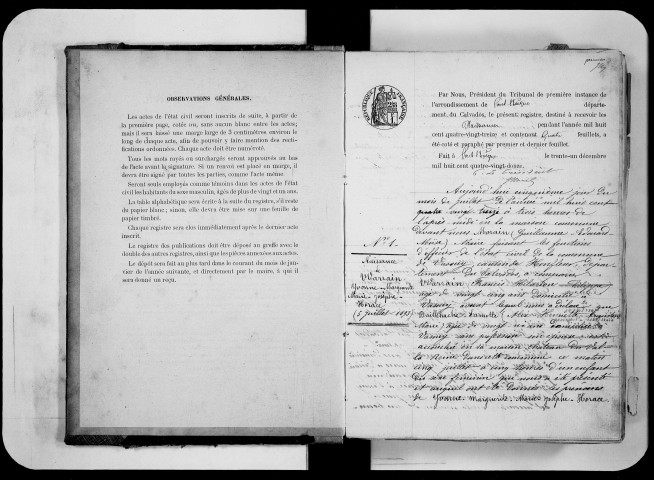 OBSERVATIONS GÉNÉRALES.
Les actes de l'état civil seront inscrits de suite, à partir de
la première page, cotée ou, sans aucun blanc entre les actes;
mais il sera laissé une marge large de 3 centimètres environ le
long de chaque acte, afin de pouvoir y faire mention des recti-
fications ordonnées. Chaque acte doit être numéroté.
Tous les mots rayés ou surchargés seront approuvés au bas
de l'acte avant la signature. Si un renvoi est placé en marge, il
devra être signé par toutes les parties, comme l'acte même.
Seront seuls employés comme témoins dans les actes de l'état
civil les habitants du sexe masculin, âgés de plus de vingt et un ans.
La table alphabétique sera écrite à la suite du registre, s'il reste
du papier blanc; sinon, elle devra être mise sur une feuille de
papier timbré.
Chaque registre sera clos immédiatement après le dernier acte
inscrit.
Le registre des publications doit être déposé au greffe avec le
double des autres registres, ainsi que les pièces annexées aux actes.
Le dépôt sera fait au plus tard dans le courant du mois de jan-
vier de l'année suivante, et directement par le maire, à qui il
sera donné un reçu.
premier
Par Nous, Président du Tribunal de première instance de
l'arrondissement de Pont-l'Évêque départe-
ment, du Calvados, le présent registre, destiné à recevoir les
Naissances pendant l'année mil huit
cent quatre-vingt-treize et contenant quatre feuillets, a
été coté et paraphé par premier et dernier feuillet.
Fait à Pont-l'Évêque le trente-un décembre
mil huit cent quatre-vingt-douze.
Le Président
Aujourd'hui cinquième jour du
mois de juillet de l'année mil huit cent
quatre vingt treize à trois heures de
l'après midi en la maison commune
devant nous Morain (Guillaume Edouard
Maire faisant les fonctions
d'officier de l'état civil de la commune
de canton de Honfleur, Dépar-
tement du Calvados, a comparu
Warrain Francis Hilarion
âgé de vingt ans domicilié à
lequel nous a déclaré que
Marie) âgée de vingt ans domiciliée à
sans profession son épouse est
accouchée en la maison
la Reine dans cette commune ce matin
cinq juillet à cinq heures d'un enfant
du sexe féminin qui nous a été présenté
et auquel ont été donnés les prénoms
de Yvonne-Marguerite-Marie-Josèphe-Horace
N° 1.
Naissance
Warrain
Yvonne-Marguerite
Marie-Josèphe-
Horace
(5 juillet 1893)